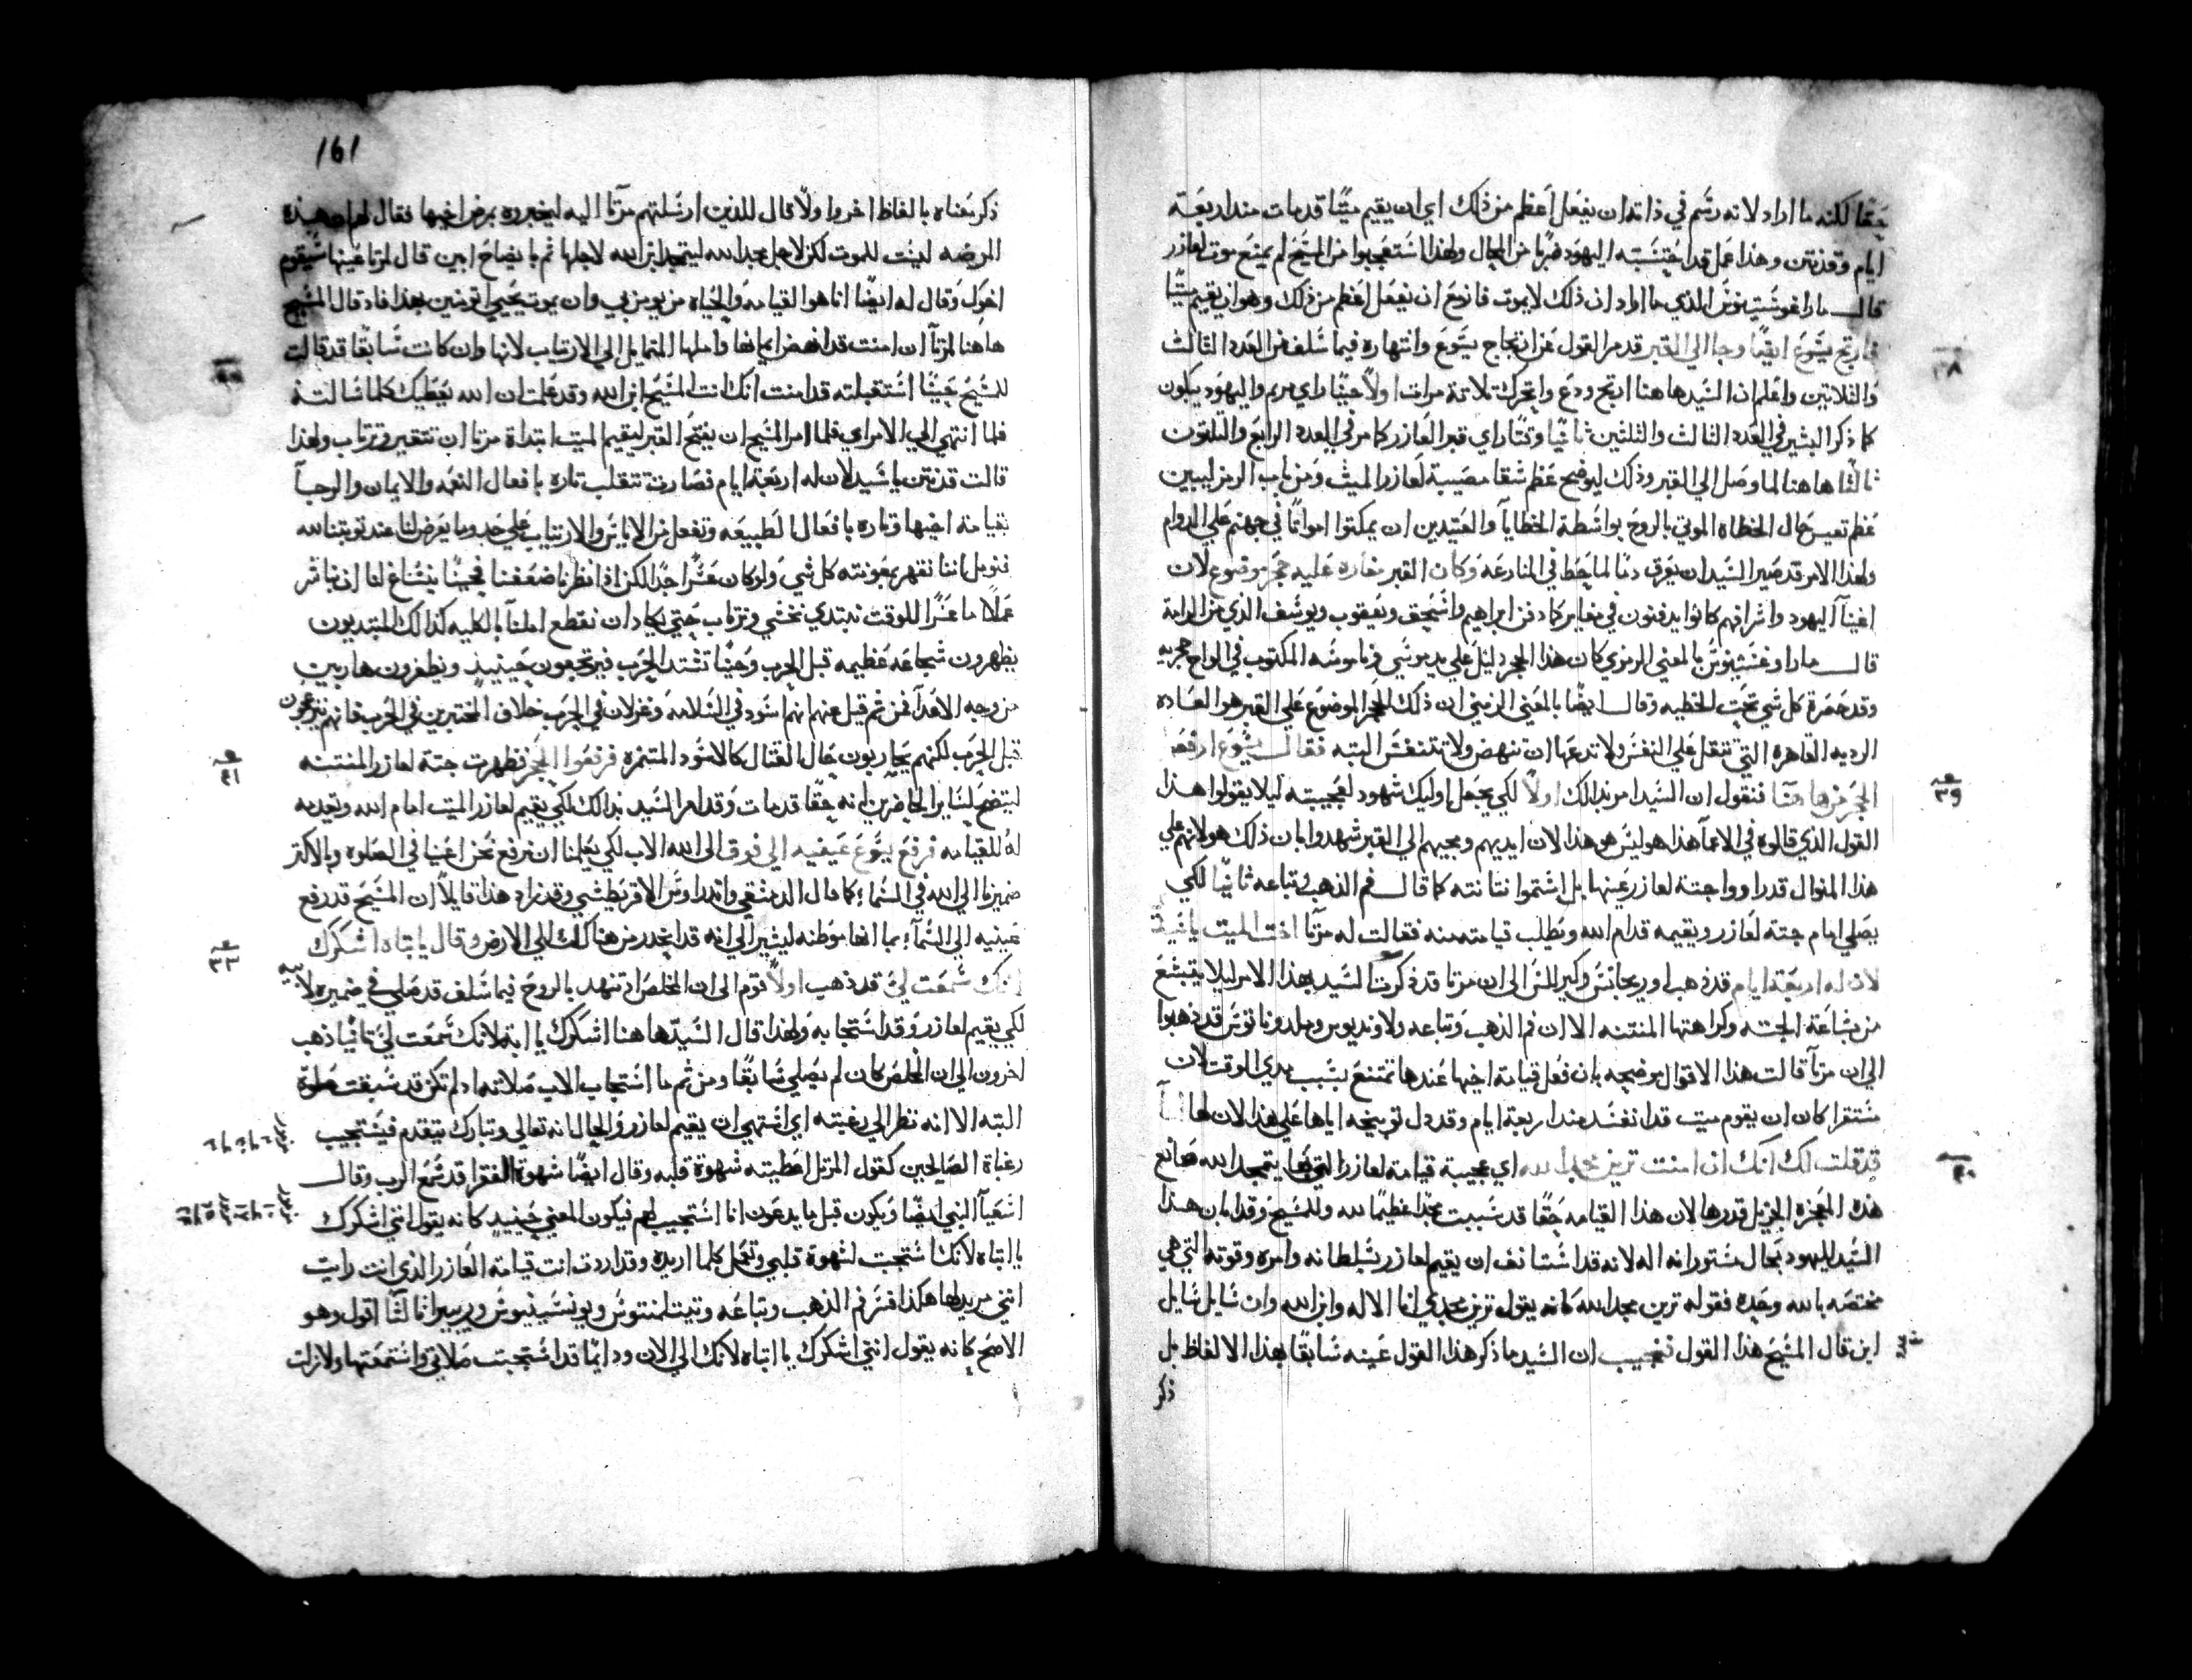 حقا لكنه ما اراد لانه رسم في ذاته ان يفعل اعظم من ذلك اي ان يقيم ميتا قد مات منذ اربعة
ايام وقد نتن وهذا عمل قد احتسبته اليهود ضربا من المحال ولهذا استعجبوا من المسيح لم يمنع موت لعازر
قال ماراغوستينوس الذي ما اراد ان ذلك لا يموت فازمع ان يفعل اعظم من ذلك وهو ان يقيم ميتا
فارتج يسوع ايضا وجا الي القبر قد مر القول عن ارتجاج يسوع وانتهاره فيما سلف من العدد الثالث
والثلاثين واعلم ان السيد هاهنا ارتج ودمع واتحرك ثلاثة مرات اولا حينا راي مريم واليهود يبكون
كما ذكر البشير في العدد الثالث والثلثين ثانيا وقتا راي قبر العازر كما مر في العدد الرابع والثلثون
ثالثا هاهنا لما وصل الي القبر وذلك ليوضح عظم شقا مصيبة لعازر الميت ومن باب الرمز ليبين
عظم تعس حال الخطاه الموتي بالروح بواسطة الخطايا والعتيدين ان يمكثوا امواتا في جهنم علي الدوام
ولهذا الامر قد صير السيد ان يعرق دما لما حط في المنازعه وكان القبر مغاره عليه حجر موضوع لان
اغنيآ اليهود واشرافهم كانوا يدفنون في مغاير كما دفن ابراهيم واسحق ويعقوب ويوسف الذي من الرامة
قال ماراوغستينوس بالمعني الرمزي كان هذا الحجر دليل علي يد موسي وناموسه المكتوب في الواح حجريه
وقد حصرة كل شي تحت الخطيه وقال ايضا بالمعني الرمزي ان ذلك الحجر الموضوع علي القبر هو العاده
الرديه القاهره التي تثقل علي النفس ولا تدعها ان تنهض ولا تتنفس البته فقال يسوع ارفعو
الحجر من هاهنا فنقول ان السيد امر بذالك اولا لكي يجعل اوليك شهود لعجيبته ليلا يقولوا هذا
القول الذي قالوه في الاعمآ هذا هو ليس هو هذا لان ايديهم ومجيهم الي القبر شهدوا بان ذلك هو لانهم علي
هذا المنوال قد راووا جتة لعازر عينها بل اشتموا نتانته كما قال فم الذهب وتباعه ثانيا لكي
يصلي امام جتة لعازر ويقيمه قدام الله ويطلب قيامته منه فقالت له مرتآ اخت الميت يا سيد
لان له اربعة ايام قد ذهب اوريجانس وكيرللس الي ان مرتا قد ذكرت السيد بهذا الامر ليلا يتبشع
من بشاعة الجته وكراهتها المنتنه الا ان فم الذهب وتباعه ولاونديوس وملدوناتوس قد ذهبوا
الي ان مرتآ قالت هذا الاقوال موضحه بان فعل قيامة اخيها عندها تمتنع بسبب مدي الوقت لان
مستقرا كان ان يقوم ميت قد انفسد منذ اربعة ايام وقد دل توبيخه اياها علي هذا لان لها
قد قلت لك انك ان امنت ترين مجد الله اي عجيبة قيامة لعازر التي بها يتمجد الله صانع
هذه المعجزه الجزيل قدرها لان هذا القيامه حقا قد سببت مجدا عظيما لله وللمسيح وقد ابان هذا
السيد لليهود بحال مستور انه اله لانه قد استانف ان يقيم لعازر بسلطانه وامره وقوته التي هي
مختصه بالله وحده فقوله ترين مجد الله كانه يقول ترين مجدي انا الاله وابن الله وان سايل سايل
اين قال المسيح هذا القول فنجيب ان السيد ما ذكر هذا القول عينه سابقا بهذا الالفاظ بل
ذكر
٣٨
٣٩
٤٠
161
ذكر معناه بالفاظ اخر اولا قال للذين ارسلتهم مرتا اليه ليخبروه بمرض اخيها فقال لهم ان هذه
المرضه ليست للموت لكن لاجل مجد الله ليتمجد ابن الله لاجلها ثم بايضاح ابين قال لمرتا عينها سيقوم
اخوك وقال له ايضا انا هوا القيامه والحياه من يومن بي وان يموت يحيي اتومنين بهذا فاذ قال المسيح
هاهنا لمرتآ ان امنت قد انهض ايمانها واملها المتمايل الي الارتياب لانها وان كانت سابقا قد قالت
للمسيح حينا استقبلته قد امنت انك انت المسيح ابن الله وقد علمت ان الله يعطيك كلما سالته
فلما انتهي الي الامر اي فلما امر المسيح ان يفتح القبر ليقيم الميت ابتداة مرتا ان تتقير وترتاب ولهذا
قالت قد نتن يا سيد لان له اربعة ايام فصارت تتقلب تاره بافعال النعمه والايمان والرجآ
بقيامة اخيها وتاره بافعال الطبيعه وتفعل من الاياس والارتياب علي حد وما يعرض لنا عند توبتنا لله
فنومل اننا نقهر بمعونته كل شي ولو كان عسرا جدا لكن اذا نظرنا ضعفنا فحينا ينساغ لنا ان نباشر
عملا ما عسرا للوقت نبتدي نخشي ونرتاب حتي نكاد ان نقطع املنا بالكليه كذالك المبتديون
يظهرون شجاعه عظيمه قبل الحرب وحينا تشتد الحرب فيرتجعون حينيذ ويظفرون هاربين
من وجه الاعدآ فمن ثم قيل عنهم انهم اسود في السلامه وغزلان في الحرب خلاف المختبرين في الحرب فانهم يرتجعون
قبل الحرب لكنهم يحاربون حال القتال كالاسود المتنمره فرفعوا الحجر فظهرت جتة لعازر المنتنه
ليتضح لساير الحاضرين انه حقا قد مات وقد امر السيد بذالك لكي يقيم لعازر الميت امام الله ويعيده
له للقيامه فرفع يسوع عينيه الي فوق الي الله الاب لكي يعلمنا ان نرفع نحن اعينا في الصلوه وبالاكثر
ضميرنا الي الله في السماء كما قال الدمشقي واندراوس الاقريطشي وقد زاد هذا قايلا ان المسيح قد رفع
عينيه الي السمآء بما انها موطنه ليشير الي انه قد انحدر من هنالك الي الارض وقال يا ابتاه اشكرك
انك سمعت لي قد ذهب اولا قوم الي ان المخلص اذ تنهد بالروح فيما سلف قد صلي في ضميره لابيه
لكي يقيم لعازر وقد استجابه ولهذا قال السيد هاهنا اشكرك يا ابة لانك سمعت لي ثانيا ذهب
اخرون الي ان المخلص كان لم يصلي سابقا ومن ثم ما استجاب الاب صلاته اذ لم تكن قد سبقت صلوة
البته الا انه نظر الي رغبته اي اشتهي ان يقيم لعازر والحال انه تعالي وتبارك يتقدم فيستجيب
رغباة الصالحين كقول المرتل اعطيته شهوة قلبه وقال ايضا شهوة الفقرا قد سمع الرب وقال
اشعيآ النبي ايضا ويكون قبل ما يدعون انا استجيب لهم فيكون المعني حينيذ كانه يقول انني اشكرك
يا ابتاه لانك استجبت لشهوة قلبي وتعمل كلما اريده وقد اردت انت قيامة العازر الذي انت رايت
انني مريدها هكذا فسر فم الذهب وتباعه وتيت لمنتوس ويونسينيوس وريبيرا ثالثا اقول وهو
الاصح كانه يقول انني اشكرك يا ابتاه لانك الي الان ودايما قد استجبت صلاتي واستمعتها ولازلت
٤١